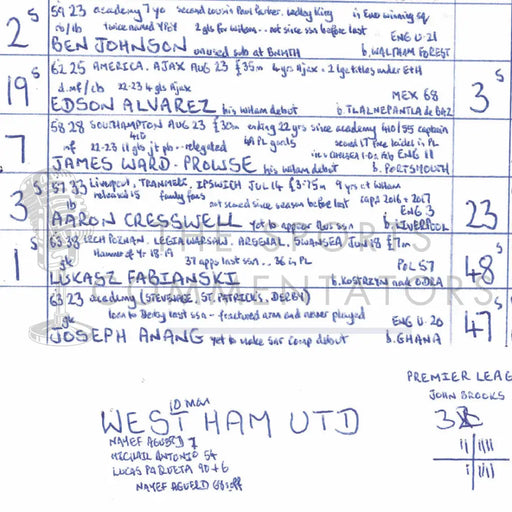 59 23 academy 7 yo second cousin Paul Parker, Ledley King is Euro winning sq
2 S rb/lb twice named YPOY 2 gls for WHam.. not since ssn before last ENG U-21
BEN JOHNSON unused sub at BNMTH b. WALTHAM FOREST
62 25 AMERICA, AJAX AUG 23 £35m 4 yrs Ajax. 2 lge titles under ETH
19 S d.mf/cb 22-23 4 gls Ajax MEX 68 3 S
EDSON ALVAREZ his WHam debut b. TLALNEPANTLA de BAZ
58 28 SOUTHAMPTON AUG 23 £30m ending 22 yrs since academy 410/55 captain
7 mf 22-23 11 gls jt pb.. relegated scored 17 free kicks in PL ENG 11
JAMES WARD-PROWSE his WHam debut b. PORTSMOUTH
57 33 Liverpool, TRANMERE, IPSWICH JUL 14 £3.75m 9 yrs at WHam
3 S lb released 15 family fans not scored since season before last caps 2016 + 2017 ENG 3 23
AARON CRESSWELL yet to appear this ssn b. LIVERPOOL
63 38 LECH POZNAN, LEGIA WARSAW, ARSENAL, SWANSEA JUN 18 £7m
1 S gk Hammer of Yr 18-19 37 apps last ssn.. 36 in PL POL 57 48 S
LUKASZ FABIANSKI b. KOSTRZYN nad ODRA
63 23 academy (STEVENAGE, ST. PATRICK'S, DERBY)
gk loan to Derby last ssn - fractured arm and never played ENG U-20 47 S
JOSEPH ANANG yet to make snr comp debut b. GHANA
PREMIER LEAG
JOHN BROOKS
10 MEN
WEST HAM UTD 3
NAYEF AGUERD 7
MICHAIL ANTONIO 54
LUCAS PAQUETA 90+6
NAYEF AGUERD off
THE SPORTS COMMENTATORS